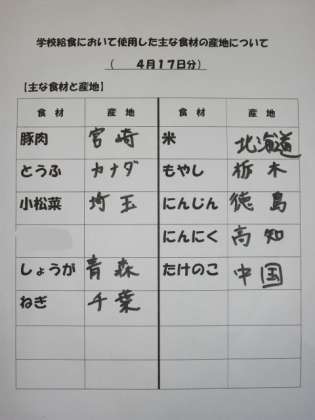 学校給食において使用した主な食材の産地について
（　　4月17日分）
【主な食材と産地】
食材 産地 食材 産地
豚肉 宮崎 米 北海道
とうふ カナダ もやし 栃木
小松菜 埼玉 にんじん 徳島
にんにく 高知
しょうが 青森 たけのこ 中国
ねぎ 千葉